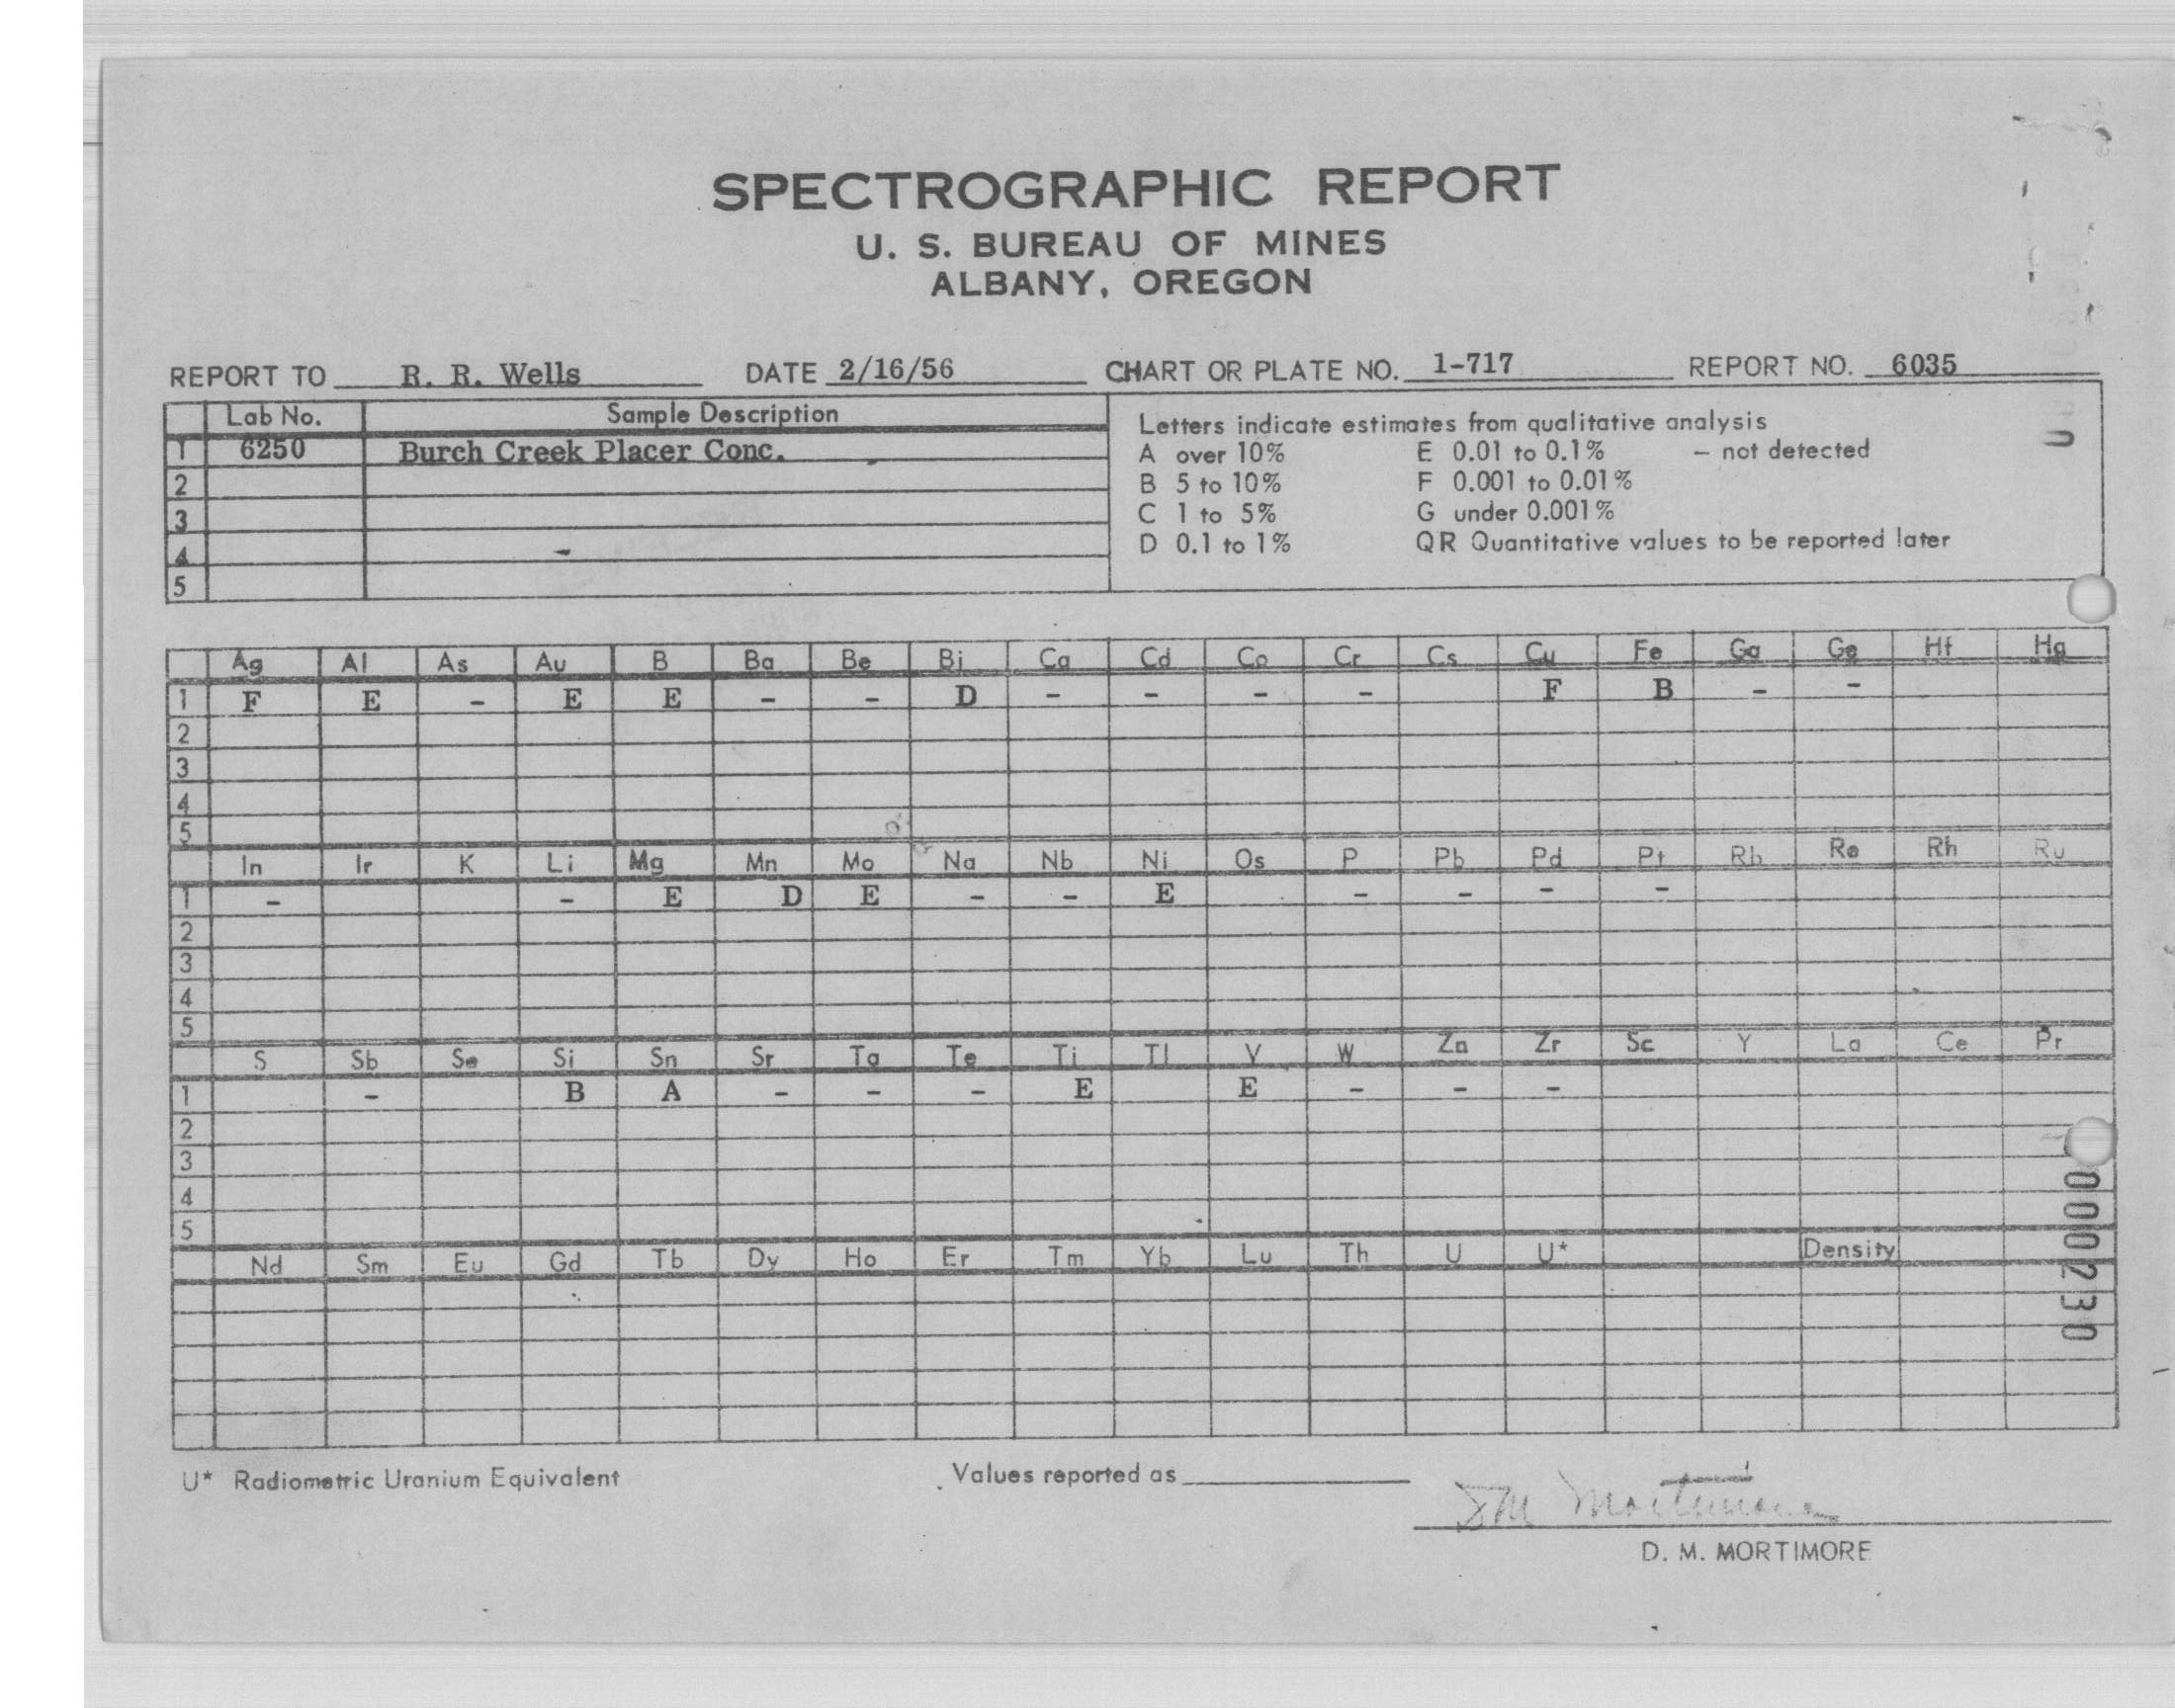 SPECTROGRAPHIC REPORT
U. S. BUREAU OF MINES
ALBANY, OREGON
REPORT TO R. R. Wells DATE 2/16/56 CHART OR PLATE NO. 1-717 REPORT NO. 6035
Lab No. Sample Description
1 6250 Burch Creek Placer Conc.
2
3
4
5
Letters indicate estimates from qualitative analysis
A over 10% E 0.01 to 0.1% – not detected
B 5 to 10% F 0.001 to 0.01%
C 1 to 5% G under 0.001%
D 0.1 to 1% QR Quantitative values to be reported later
Ag Al As Au B Ba Be Bi Ca Cd Co Cr Cs Cu Fe Ga Ge Hf Hg
1 F E - E E - - D - - - - F B - -
2
3
4
5
In Ir K Li Mg Mn Mo Na Nb Ni Os P Pb Pd Pt Rb Re Rh Ru
1 - - E D E - - E - - - -
2
3
4
5
S Sb Se Si Sn Sr Ta Te Ti Tl V W Zn Zr Sc Y La Ce Pr
1 - B A - - - E E - - -
2
3
4
5
Nd Sm Eu Gd Tb Dy Ho Er Tm Yb Lu Th U U* Density
U* Radiometric Uranium Equivalent Values reported as
D M Mortimore
D. M. MORTIMORE
000230